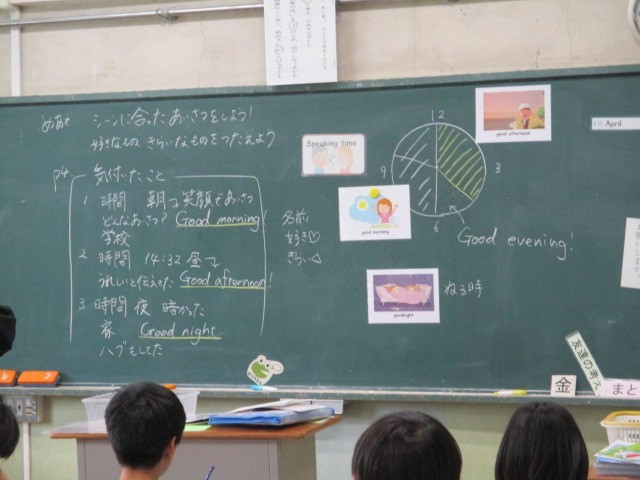 めあて シーンに合ったあいさつをしよう!
好きなもの、きらいなものをつたえよう
P4 気付いたこと
1 時間 朝って笑顔であいさつ
どんなあいさつ? Good morning!
学校
2 時間 14:32 昼って
うれしいと伝えた Good afternoon!
3 時間 夜 暗かった
家 Good night
ハグもしてた
名前
好き♡
きらい
Speaking time
12
3
6
9
Good evening!
good morning
good afternoon
goodnight
ねる時
April
友達の考え
金
まと